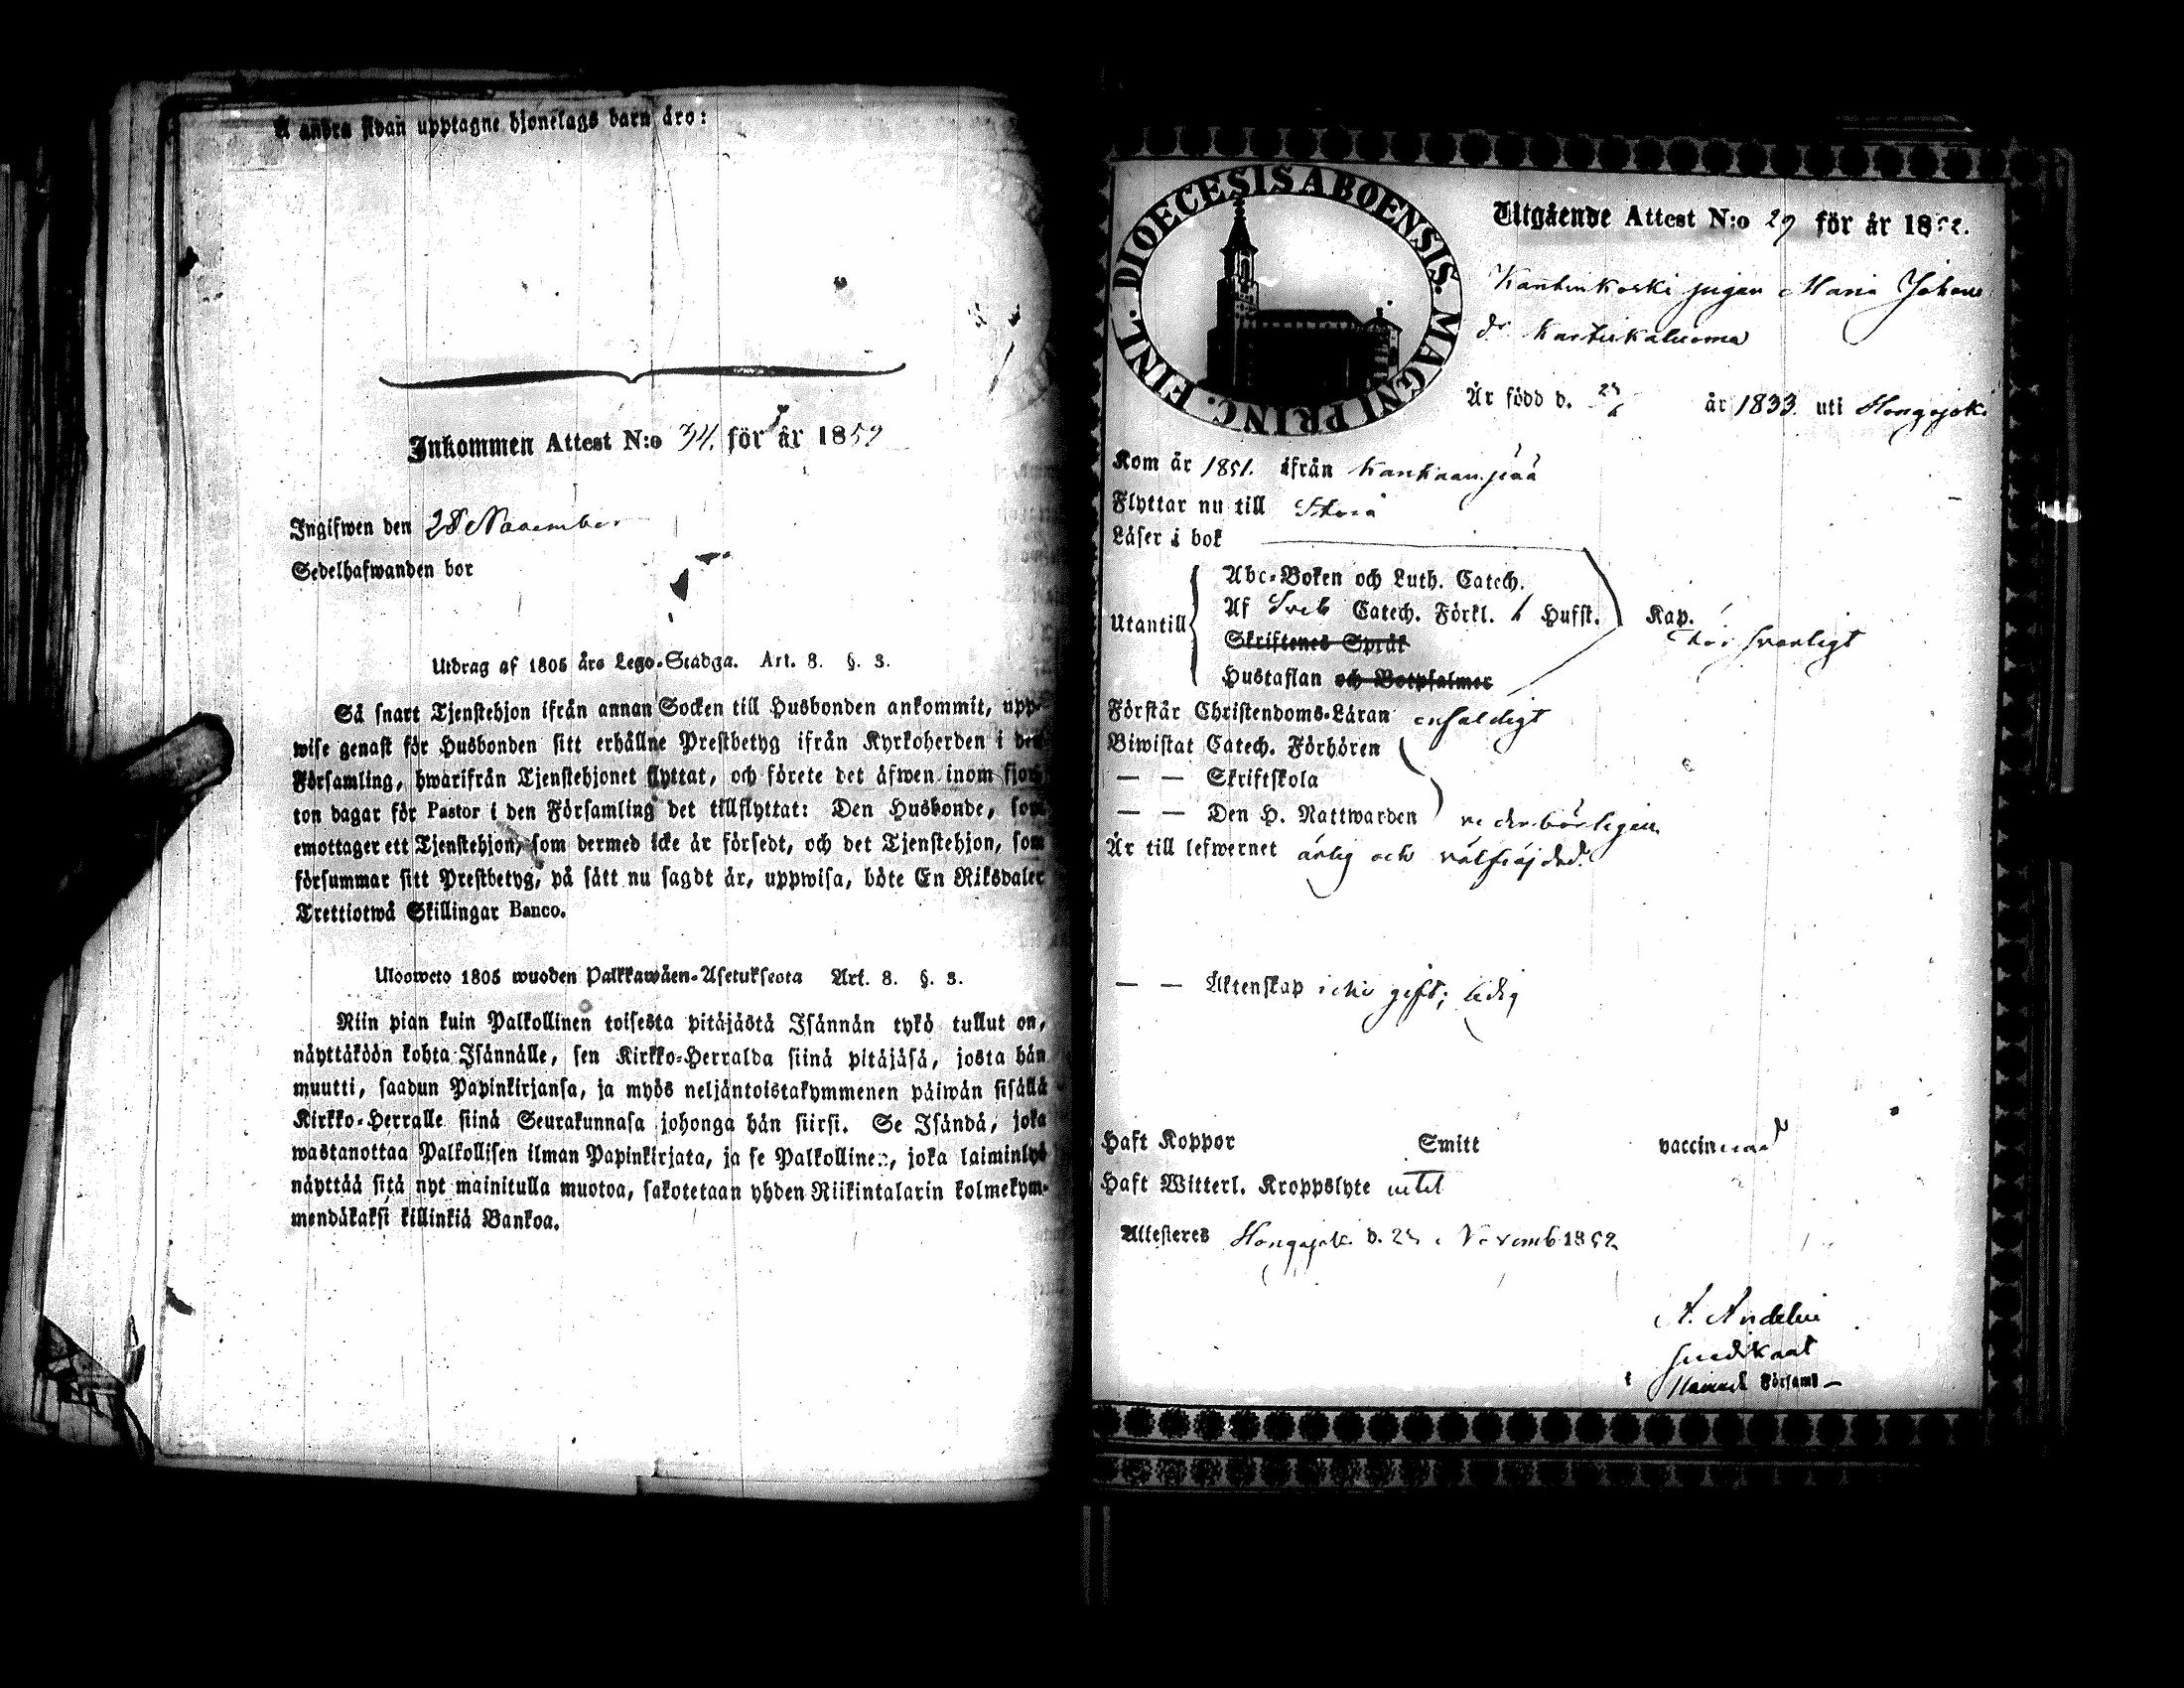 Å andra sidan upptagne hjonelags barn äro:
Inkommen Attest N:o 34. för år 1852
Ingifwen den 28 November
Sedelhafwanden bor
Utdrag af 1805 års Lego-Stadga. Art. 8. §. 3.
Så snart Tjenstehjon ifrån annan Socken till Husbonden ankommit, upp-
wise genast för Husbonden sitt erhållne Prestbetyg ifrån Kyrkoherden i den
Församling, hwarifrån Tjenstehjonet flyttat, och förete det äfwen inom fjor-
ton dagar för Pastor i den Församling det tillflyttat: Den Husbonde, som
emottager ett Tjenstehjon, som dermed icke är försedt, och det Tjenstehjon, som
försummar sitt Prestbetyg, på sätt nu sagdt är, uppwisa, böte En Riksdaler
Trettiotwå Skillingar Banco.
Ulosweto 1805 wuoden Palkkawäen-Asetuksesta Art. 8. §. 3.
Niin pian kuin Palkollinen toisesta pitäjästä Isännän tykö tullut on,
näyttäköön kohta Isännälle, sen Kirkko-Herralda siinä pitäjäsä, josta hän
muutti, saadun Papinkirjansa, ja myös neljäntoistakymmenen päiwän sisällä
Kirkko-Herralle siinä Seurakunnasa johonga hän siirsi. Se Isändä, joka
wastanottaa Palkollisen ilman Papinkirjata, ja se Palkollinen, joka laiminlyö
näyttää sitä nyt mainitulla muotoa, sakotetaan yhden Riikintalarin kolmekym-
mendäkaksi killinkiä Bankoa.
DIOECESIS ABOENSIS. MAGNI PRINC. FINL.
Utgående Attest N:o 29 för år 1852.
pigan Maria Johans
dr
Är född d. år 1833. uti Hongojoki
Kom år 1851. ifrån Kankaanpää
Flyttar nu till Storå
Läser i bok
Utantill
Abc-Boken och Luth. Catech.
Af Sveb Catech. Förkl. 6 Hufst. Kap.
Skriftenes Språk
försvarligt
Hustaflan och Botpsalmer
Förstår Christendoms-Läran enfaldigt
Biwistat Catech. Förhören
— — Skriftskola
— — Den H. Nattwarden vederbörligen
Är till lefwernet ärlig och välfrejdad.
— — Äktenskap icke gift; ledig
Haft Koppor Smitt vaccinerad
Haft Witterl. Kroppslyte intet
Attesteres Hongojoki d. 25 Novemb 1852
A. Andelin
predikant
Församl